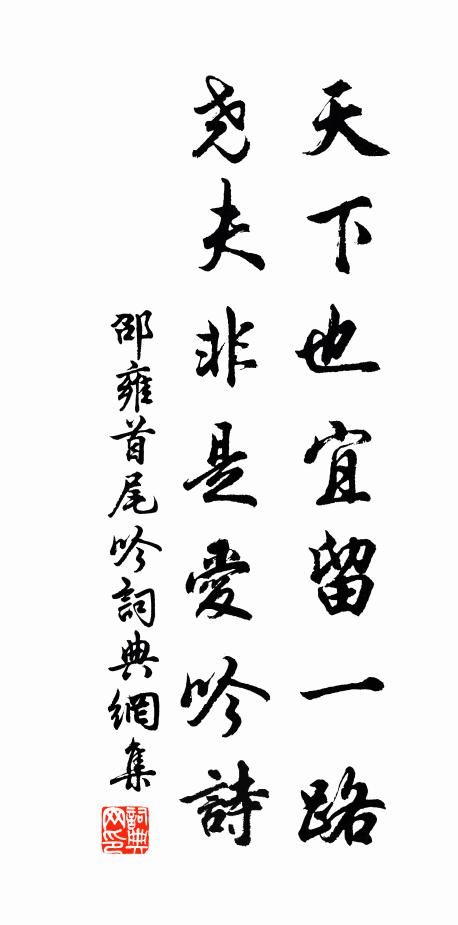 天下也宜留一路
尧夫非是愛吟詩
邵雍首尾吟詞典網集
詞典
网印